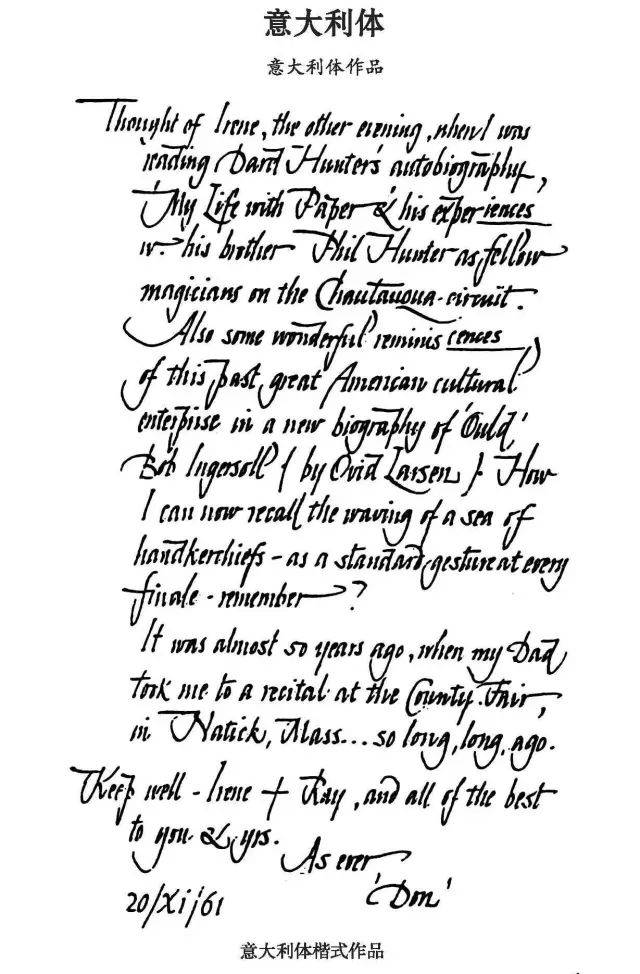 意大利体
意大利体作品
Thought of Irene, the other evening, when I was
reading Dard Hunter's autobiography,
'My Life with Paper' & his experiences
w. his brother Phil Hunter as fellow
magicians on the Chautauqua-circuit.
Also some wonderful reminiscences
of this past, great American cultural
enterprise in a new biography of 'Ould'
Bob Ingersoll (by Ovid Larsen). How
I can now recall the waving of a sea of
handkerchiefs - as a standard gesture at every
finale - remember?
It was almost 50 years ago, when my Dad
took me to a recital at the County Fair,
in Natick, Mass... so long, long, ago.
Keep well - Irene + Ray, and all of the best
to you & yrs.
As ever
'Don'
20/XI/61
意大利体楷式作品